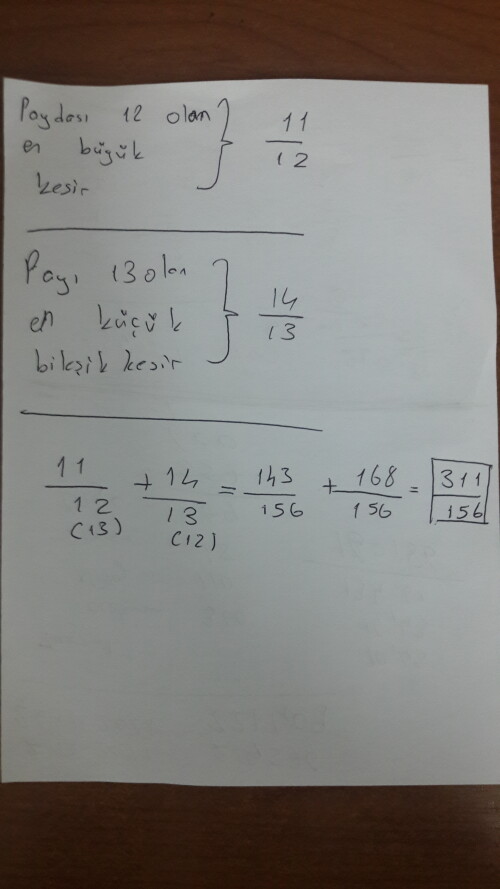 Paydası 12 olan
en büyük
kesir
11
12
Payı 13 olan
en küçük
bikşik kesir
14
13
11/12 + 14/13 = 143/156 + 168/156 = 311/156
(13) (12)